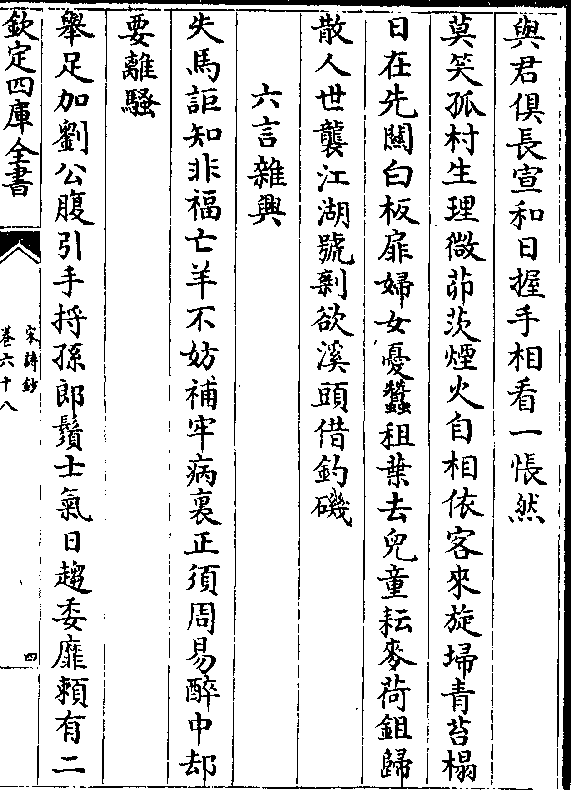 與君俱長宣和日握手相看一悵然
莫笑孤村生理微茆茨煙火自相依客來旋埽青苔榻
日在先關白板扉婦女憂蠶租葉去兒童耘麥荷鉏歸
散人世襲江湖號剩欲溪頭借釣磯
六言雜興
失馬詎知非福亡羊不妨補牢病裏正須周易醉中却
要離騷
舉足加劉公腹引手捋孫郎鬚士氣日趨委靡賴有二
欽定四庫全書
宋詩鈔
卷六十八
四